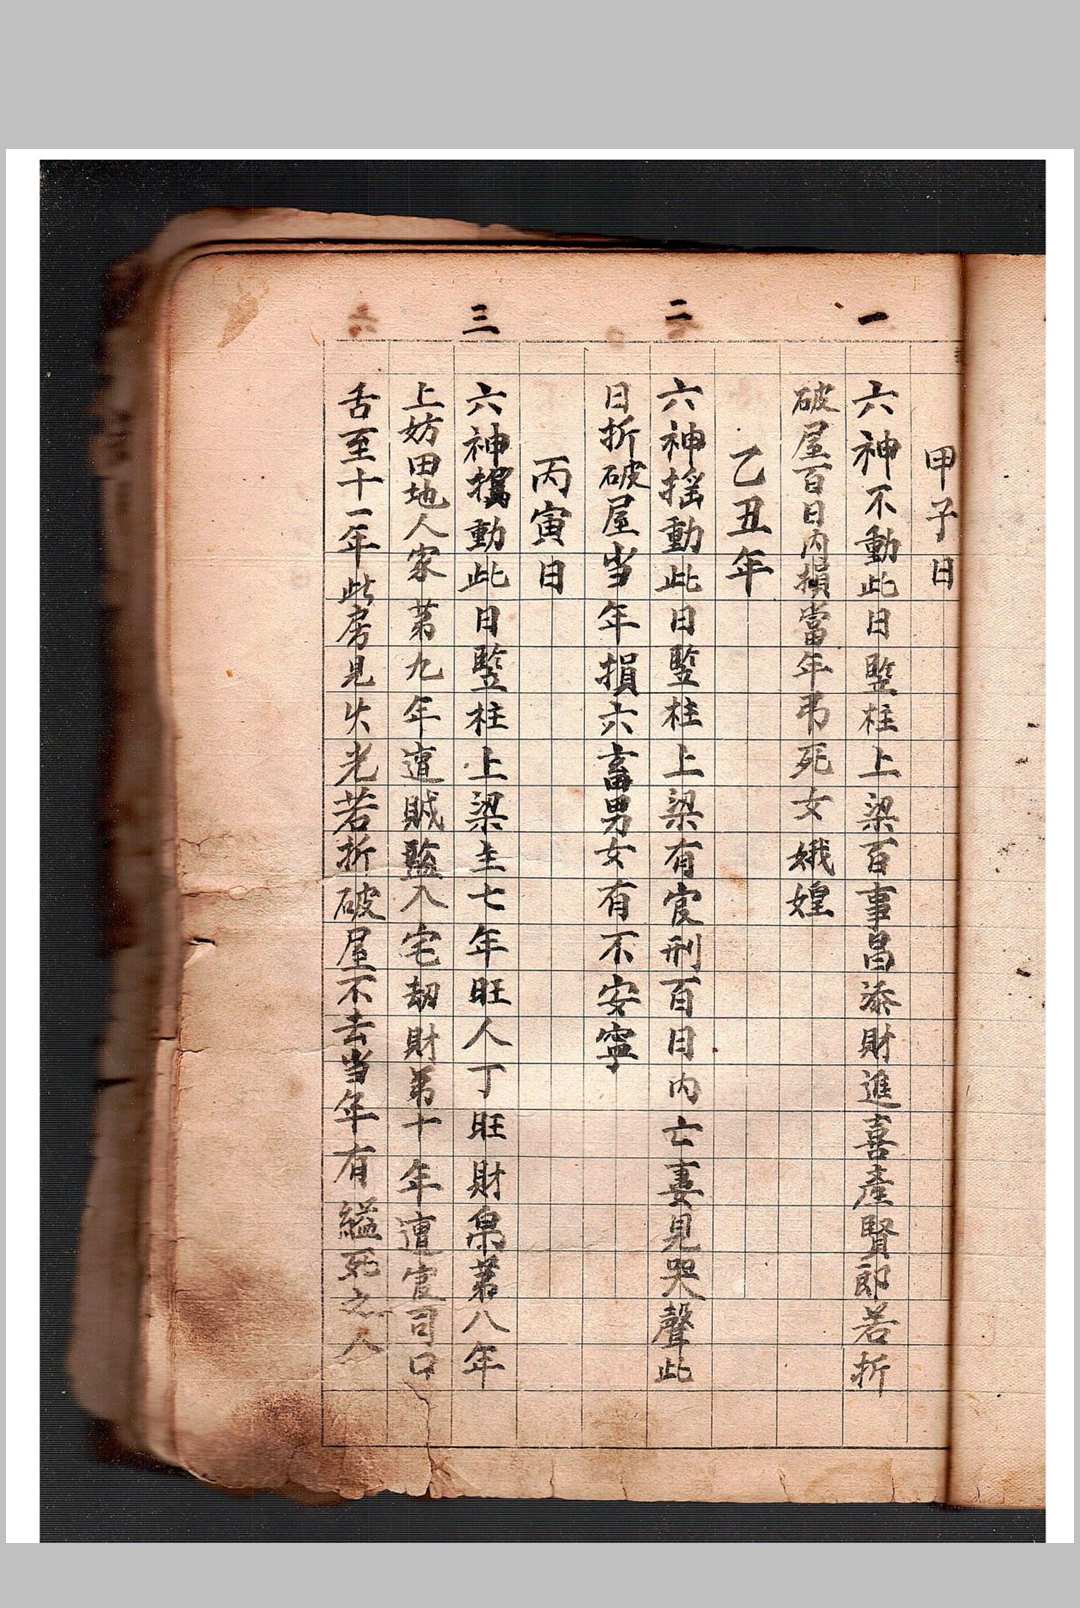 一
甲子日
六神不動此日竪柱上梁百事昌添財進喜產賢郎若折
破屋百日内損當年弔死女娥媓
乙丑年
二
六神摇動此日竪柱上梁有官刑百日内亡妻見哭聲此
日折破屋当年損六畜男女有不安寧
丙寅日
三
六神動此日竪柱上梁主七年旺人丁旺財帛第八年
上妨田地人家第九年遭賊盜入宅劫財第十年遭官司口
舌至十一年此房見火光若折破屋不去当年有縊死之人